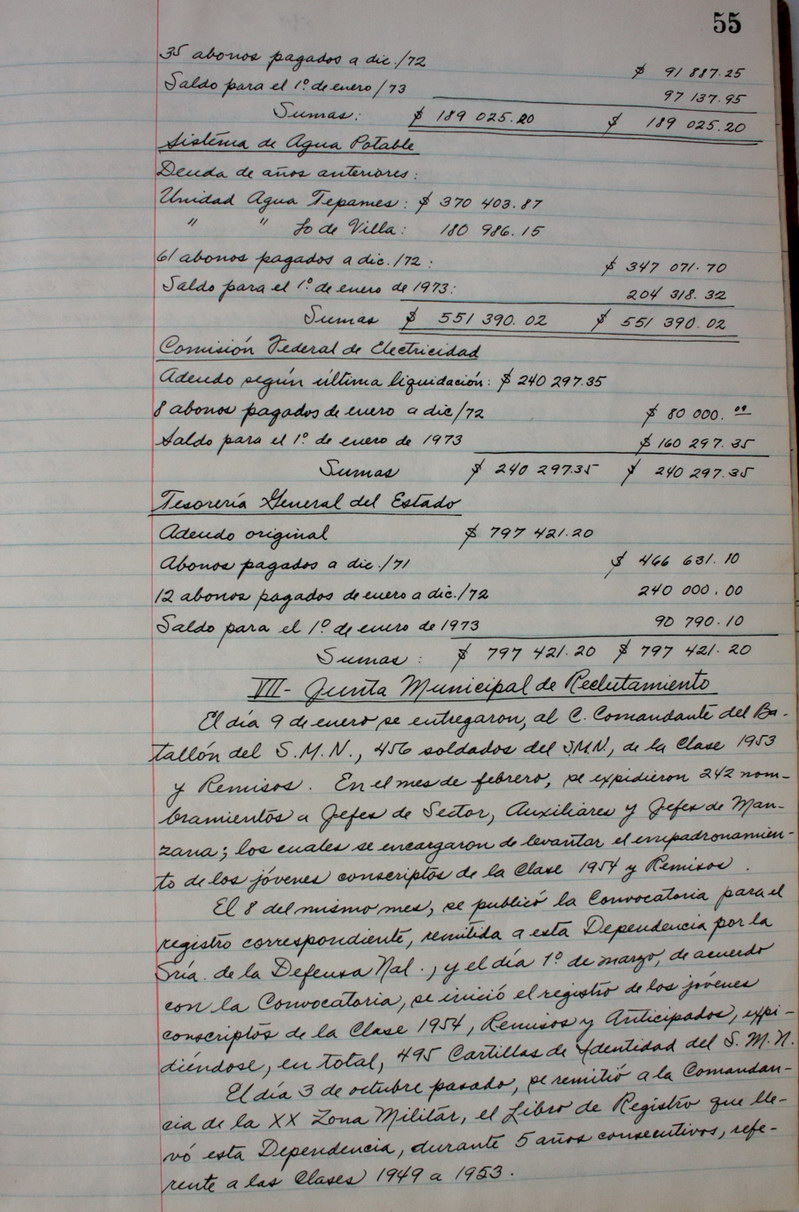 55
35 abonos pagados a dic./72 $ 91 887.25
Saldo para el 1º de enero/73 97 137.95
Sumas: $ 189 025.20 $ 189 025.20
Sistema de Agua Potable
Deuda de años anteriores:
Unidad Agua Tepames: $ 370 403.87
" " Lo de Villa: 180 986.15
61 abonos pagados a dic./72: $ 347 071.70
Saldo para el 1º de enero de 1973: 204 318.32
Sumas $ 551 390.02 $ 551 390.02
Comisión Federal de Electricidad
Adeudo según última liquidación: $ 240 297.35
8 abonos pagados de enero a dic/72 $ 80 000.00
Saldo para el 1º de enero de 1973 $ 160 297.35
Sumas $ 240 297.35 $ 240 297.35
Tesorería General del Estado
Adeudo original $ 797 421.20
Abonos pagados a dic./71 $ 466 631.10
12 abonos pagados de enero a dic./72 240 000.00
Saldo para el 1º de enero de 1973 90 790.10
Sumas: $ 797 421.20 $ 797 421.20
VII- Junta Municipal de Reclutamiento
El día 9 de enero se entregaron, al C. Comandante del Ba-
tallón del S.M.N., 456 soldados del SMN, de la Clase 1953
y Remisos. En el mes de febrero, se expidieron 242 nom-
bramientos a Jefes de Sector, Auxiliares y Jefes de Man-
zana; los cuales se encargaron de levantar el empadronamien-
to de los jóvenes conscriptos de la Clase 1954 y Remisos.
El 8 del mismo mes, se publicó la Convocatoria para el
registro correspondiente, remitida a esta Dependencia por la
Sría. de la Defensa Nal., y el día 1º de marzo, de acuerdo
con la Convocatoria, se inició el registro de los jóvenes
conscriptos de la Clase 1954, Remisos y Anticipados, expi-
diéndose, en total, 495 Cartillas de Identidad del S.M.N.
El día 3 de octubre pasado, se remitió a la Comandan-
cia de la XX Zona Militar, el Libro de Registro que lle-
vó esta Dependencia, durante 5 años consecutivos, refe-
rente a las Clases 1949 a 1953.